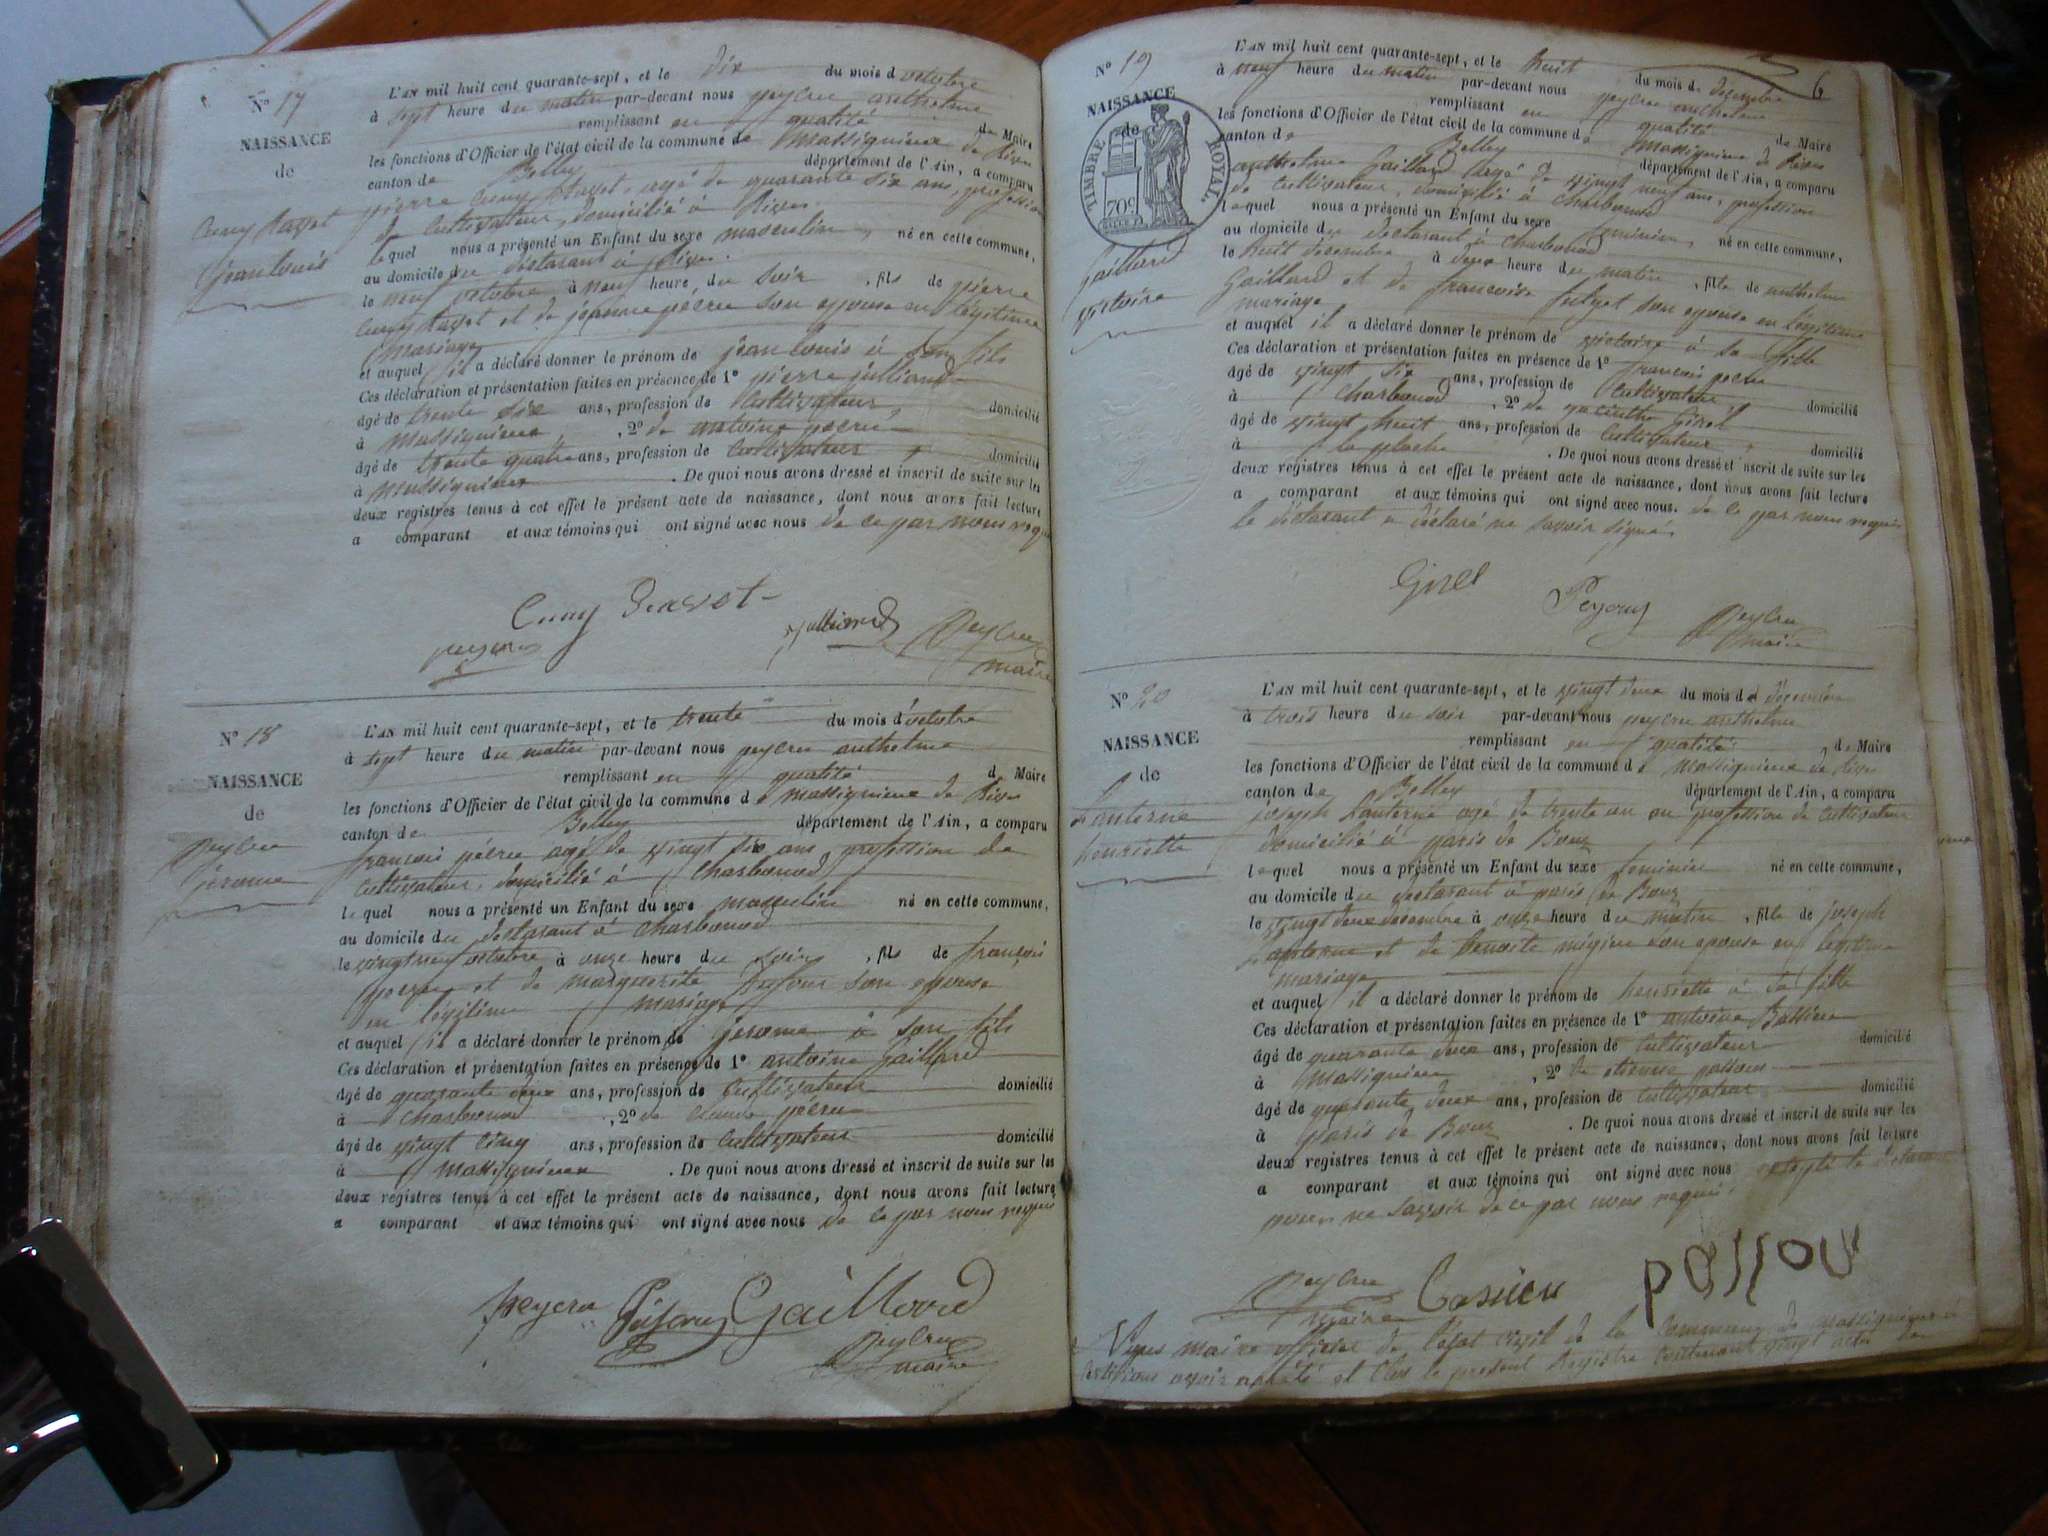 N° 17
NAISSANCE
de
Cuny
jean louis
L'AN mil huit cent quarante-sept, et le dix du mois d'octobre
à sept heure du matin par-devant nous peylru anthelme
remplissant en qualité de Maire
les fonctions d'Officier de l'état civil de la commune de Massignieu de Rives
canton de Belley département de l'Ain, a comparu
pierre Cuny agé de quarante six ans, profession
de cultivateur, domicilié à Rives
lequel nous a présenté un Enfant du sexe masculin né en cette commune,
au domicile du déclarant à Rives.
le neuf octobre à neuf heure du soir, fils de pierre
Cuny et de jeanne son epouse en légitime
mariage
et auquel il a déclaré donner le prénom de jean louis à son fils
Ces déclaration et présentation faites en présence de 1° pierre julliand
âgé de trente six ans, profession de cultivateur domicilié
à Massignieu, 2° de antoine
âgé de trente quatre ans, profession de cultivateur domicilié
à Massignieu. De quoi nous avons dressé et inscrit de suite sur les
deux registres tenus à cet effet le présent acte de naissance, dont nous avons fait lecture
a comparant et aux témoins qui ont signé avec nous de ce par nous requis
Cuny
Peylru
maire
N° 18
NAISSANCE
de
jerome
L'AN mil huit cent quarante-sept, et le trente du mois d'octobre
à sept heure du matin par-devant nous peylru anthelme
remplissant en qualité d Maire
les fonctions d'Officier de l'état civil de la commune de massignieu de Rives
canton de Belley département de l'Ain, a comparu
francois agé de vingt six ans profession de
cultivateur, domicilié à Charbonod
lequel nous a présenté un Enfant du sexe masculin né en cette commune,
au domicile du déclarant à Charbonod
le vingt neuf octobre à onze heure du soir, fils de francois
et de marguerite Dufour son epouse
en légitime mariage
et auquel il a déclaré donner le prénom de jerome à son fils
Ces déclaration et présentation faites en présence de 1° antoine Gaillard
âgé de quarante deux ans, profession de cultivateur domicilié
à Charbonod, 2° de claude
âgé de vingt cinq ans, profession de cultivateur domicilié
à massignieu. De quoi nous avons dressé et inscrit de suite sur les
deux registres tenus à cet effet le présent acte de naissance, dont nous avons fait lecture
a comparant et aux témoins qui ont signé avec nous de ce par nous requis
Gaillard
Peylru
maire
6
N° 19
NAISSANCE
de
TIMBRE ROYAL
70c
Gaillard
victoire
L'AN mil huit cent quarante-sept, et le huit du mois de décembre
à neuf heure du matin par-devant nous peylru anthelme
remplissant en qualité de Maire
les fonctions d'Officier de l'état civil de la commune de Massignieu de Rives
canton de Belley département de l'Ain, a comparu
anthelme Gaillard agé de vingt neuf ans, profession
de cultivateur, domicilié à Charbonod
lequel nous a présenté un Enfant du sexe feminin, né en cette commune,
au domicile du déclarant à Charbonod
le huit décembre à deux heure du matin, fille de anthelme
Gaillard et de francoise son epouse en légitime
mariage
et auquel il a déclaré donner le prénom de victoire à sa fille
Ces déclaration et présentation faites en présence de 1° francois
âgé de vingt six ans, profession de cultivateur domicilié
à Charbonod, 2° de Girel
âgé de vingt huit ans, profession de cultivateur domicilié
à. De quoi nous avons dressé et inscrit de suite sur les
deux registres tenus à cet effet le présent acte de naissance, dont nous avons fait lecture
a comparant et aux témoins qui ont signé avec nous. de ce par nous requis
le déclarant a déclaré ne savoir signé.
Girel
Peylru
maire
N° 20
NAISSANCE
de
Lanterne
henriette
L'AN mil huit cent quarante-sept, et le vingt deux du mois de décembre
à trois heure du soir par-devant nous peylru anthelme
remplissant en qualité de Maire
les fonctions d'Officier de l'état civil de la commune de Massignieu de Rives
canton de Belley département de l'Ain, a comparu
joseph Lanterne agé de trente un an profession de cultivateur
domicilié à
lequel nous a présenté un Enfant du sexe feminin né en cette commune,
au domicile du déclarant à
le vingt deux décembre à onze heure du matin, fille de joseph
Lanterne et de benoite son epouse en légitime
mariage
et auquel il a déclaré donner le prénom de henriette à sa fille
Ces déclaration et présentation faites en présence de 1° antoine
âgé de quarante deux ans, profession de cultivateur domicilié
à Massignieu, 2° de etienne
âgé de quarante deux ans, profession de cultivateur domicilié
à. De quoi nous avons dressé et inscrit de suite sur les
deux registres tenus à cet effet le présent acte de naissance, dont nous avons fait lecture
a comparant et aux témoins qui ont signé avec nous excepté le déclarant
pour ne savoir de ce par nous requis.
Peylru
maire
Nous maire officier de l'état civil de la commune de Massignieu
certifions avoir arrêté et clos le présent registre contenant vingt actes de